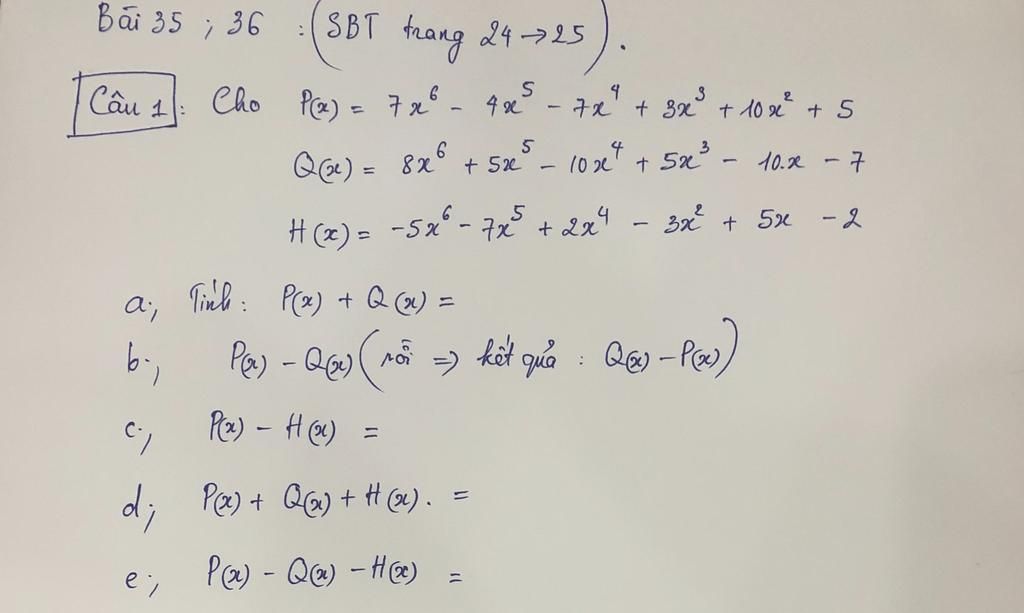 Bài 35 ; 36 : (SBT trang 24 → 25).
Câu 1 : Cho P(x) = 7x⁶ - 4x⁵ - 7x⁴ + 3x³ + 10x² + 5
Q(x) = 8x⁶ + 5x⁵ - 10x⁴ + 5x³ - 10.x - 7
H(x) = -5x⁶ - 7x⁵ + 2x⁴ - 3x² + 5x - 2
a;, Tính : P(x) + Q(x) =
b;, P(x) - Q(x) (rồi => kết quả : Q(x) - P(x))
c;, P(x) - H(x) =
d; P(x) + Q(x) + H(x). =
e;, P(x) - Q(x) - H(x) =